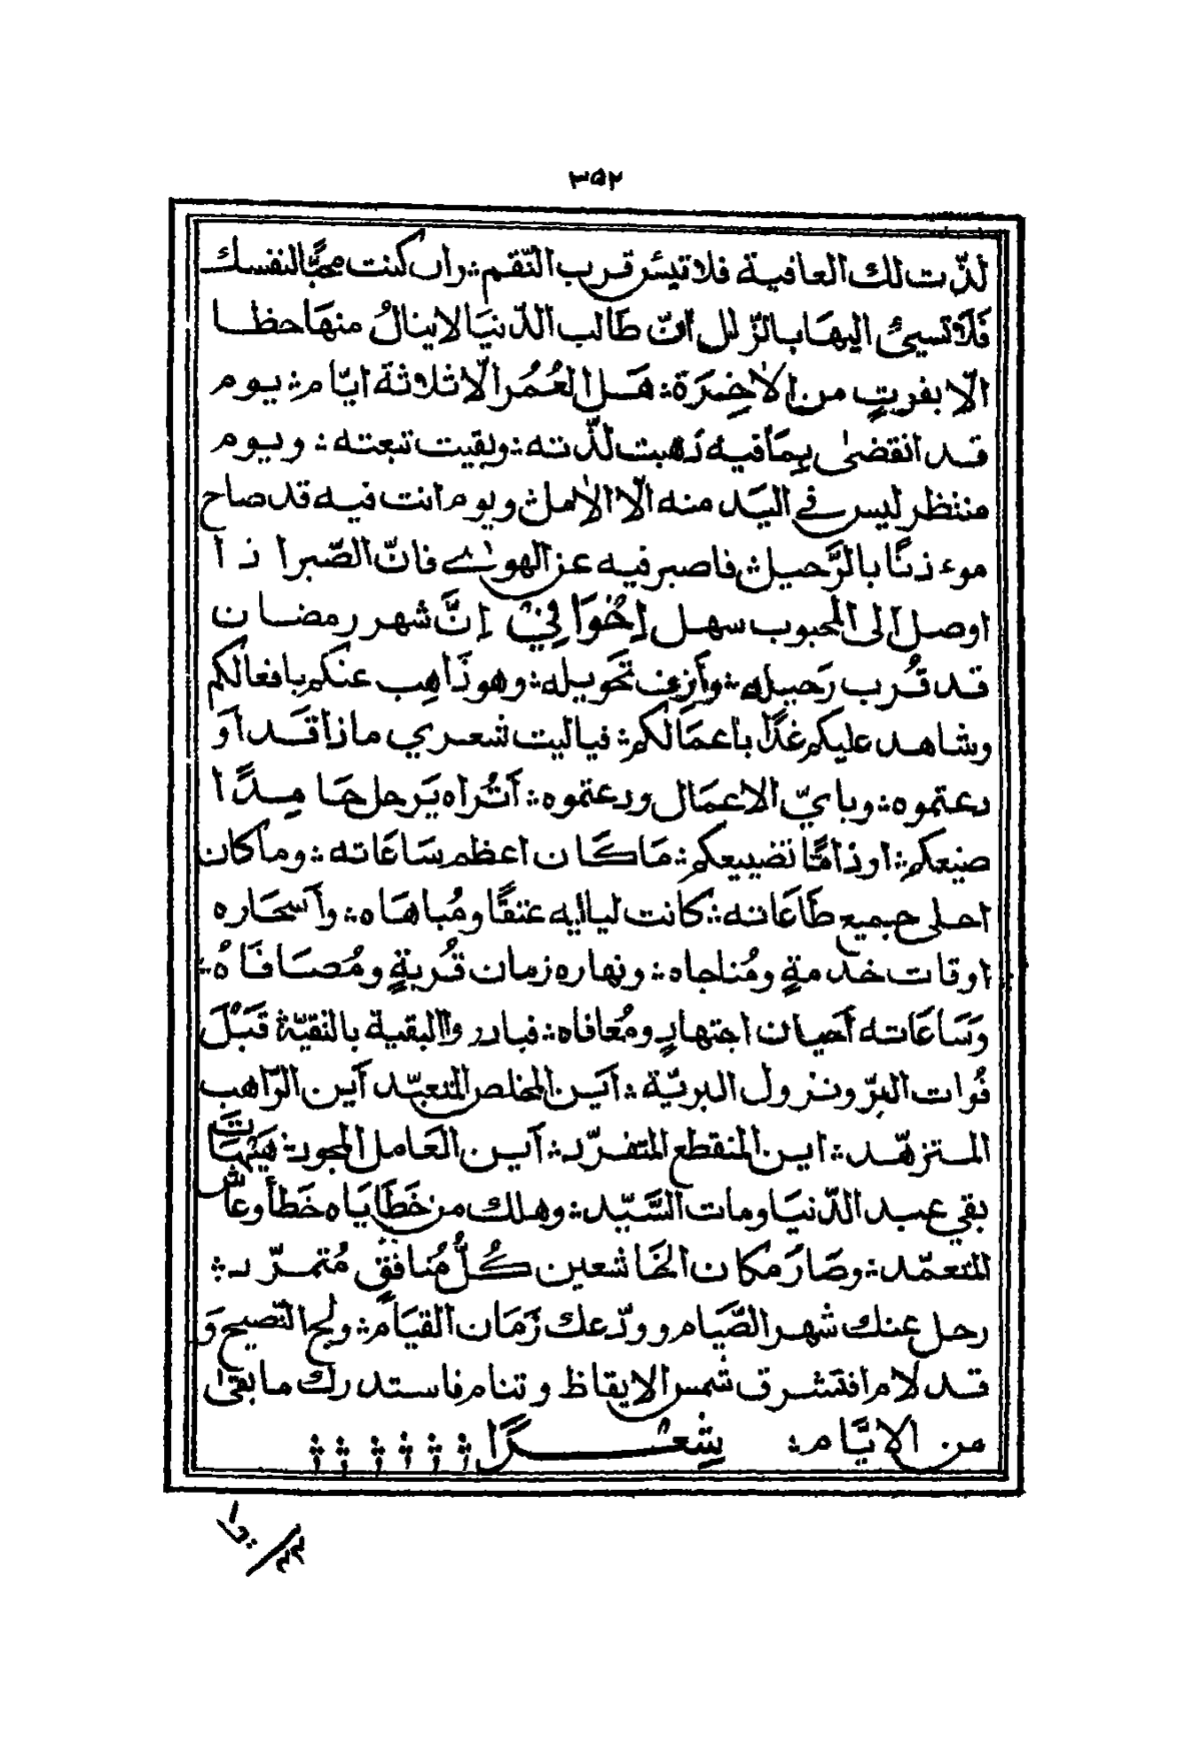 ٣٥٢
لذّت لك العافية فلا تيسٔر قرب النّقم ؞ وان كنت محبًّا لنفسك
فَلَا تسيئُ اليهَا بالزّلل انّ طَالب الدّنيَا لا ينالُ منهَا حظا
الّا بفوتٍ من الأخِرَة ؞ هَل العُمُر الّا ثلاثة ايّام ؞ يوم
قد انقضىٰ بِمَا فيه ذهبت لذّته ؞ وبقيت تبعته ؞ ويوم
منتظر ليس في اليَد منه الّا الأمل ؞ ويوم انت فيه قد صاح
موءذنًا بالرَّحيل ؞ فاصبر فيه عن الهوىٰ فانّ الصّبر اذا
اوصل الى المحبوب سهل إخْوَانيْ إنَّ شهر رمضان
قد قُرب رَحيله ؞ وأزف تحَويله ؞ وهو ذَاهِب عنكم بافعالكم
وشاهد عليكم غدًا باعمَالكم ؞ فياليت شعري ماذا قَد اَو
دعتموه ؞ وبايّ الاعمَال ودعتموه ؞ اَتُراه يَرحل حَامِدًا
صنيعكم ؞ او ذامًّا تضييعكم ؞ مَا كَان اعظم سَاعَاته ؞ وما كان
احلى جميع طَاعَاته ؞ كانت لياليه عتقًا ومُباهَاه ؞ وأسحَاره
اوقات خدمةٍ ومُناجاه ؞ ونهاره زمان قُربةٍ ومُصَافَاهُ ؞
وَسَاعَاته اَحيان اجتهادٍ ومُعافاه ؞ فبادروا البقية بالنقيّة قَبْل
فُوات البرّ ونزول البريّة ؞ اَيَن المخلص المتعبّد اَين الرّاهب
المتزهّد ؞ اين المنقطع المتفرّد ؞ اَين العَامل المجود ؞ هَيْهَات
بقي عبد الدّنيَا ومات السَّيّد ؞ وهلك من خَطَايَاه خَطأ وعَاش
المتعمّد ؞ وصَارَ مكان الخَاشعين كُلُّ مُنافقٍ مُتمرّد ؞
رحل عنك شهر الصَّيام وودّعك زَمَان القيَام ؞ ولج النّصيح وَ
قد لَام افتشرق شمس الايقاظ وتنام فاستدرك ما بقىٰ
من الايَّام ؞ شِعْرًا ؞ ؞ ؞ ؞ ؞ ؞